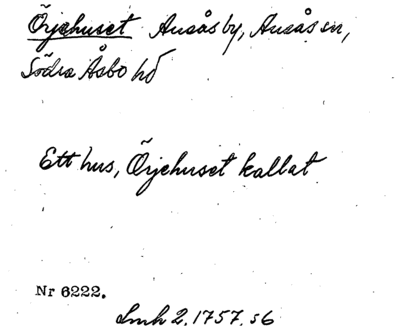 Örjehuset Ausås by, Ausås sn,
Södra Åsbo hd
Ett hus, Örjehuset kallat
Nr 6222.
Lmh 2. 1757. s6